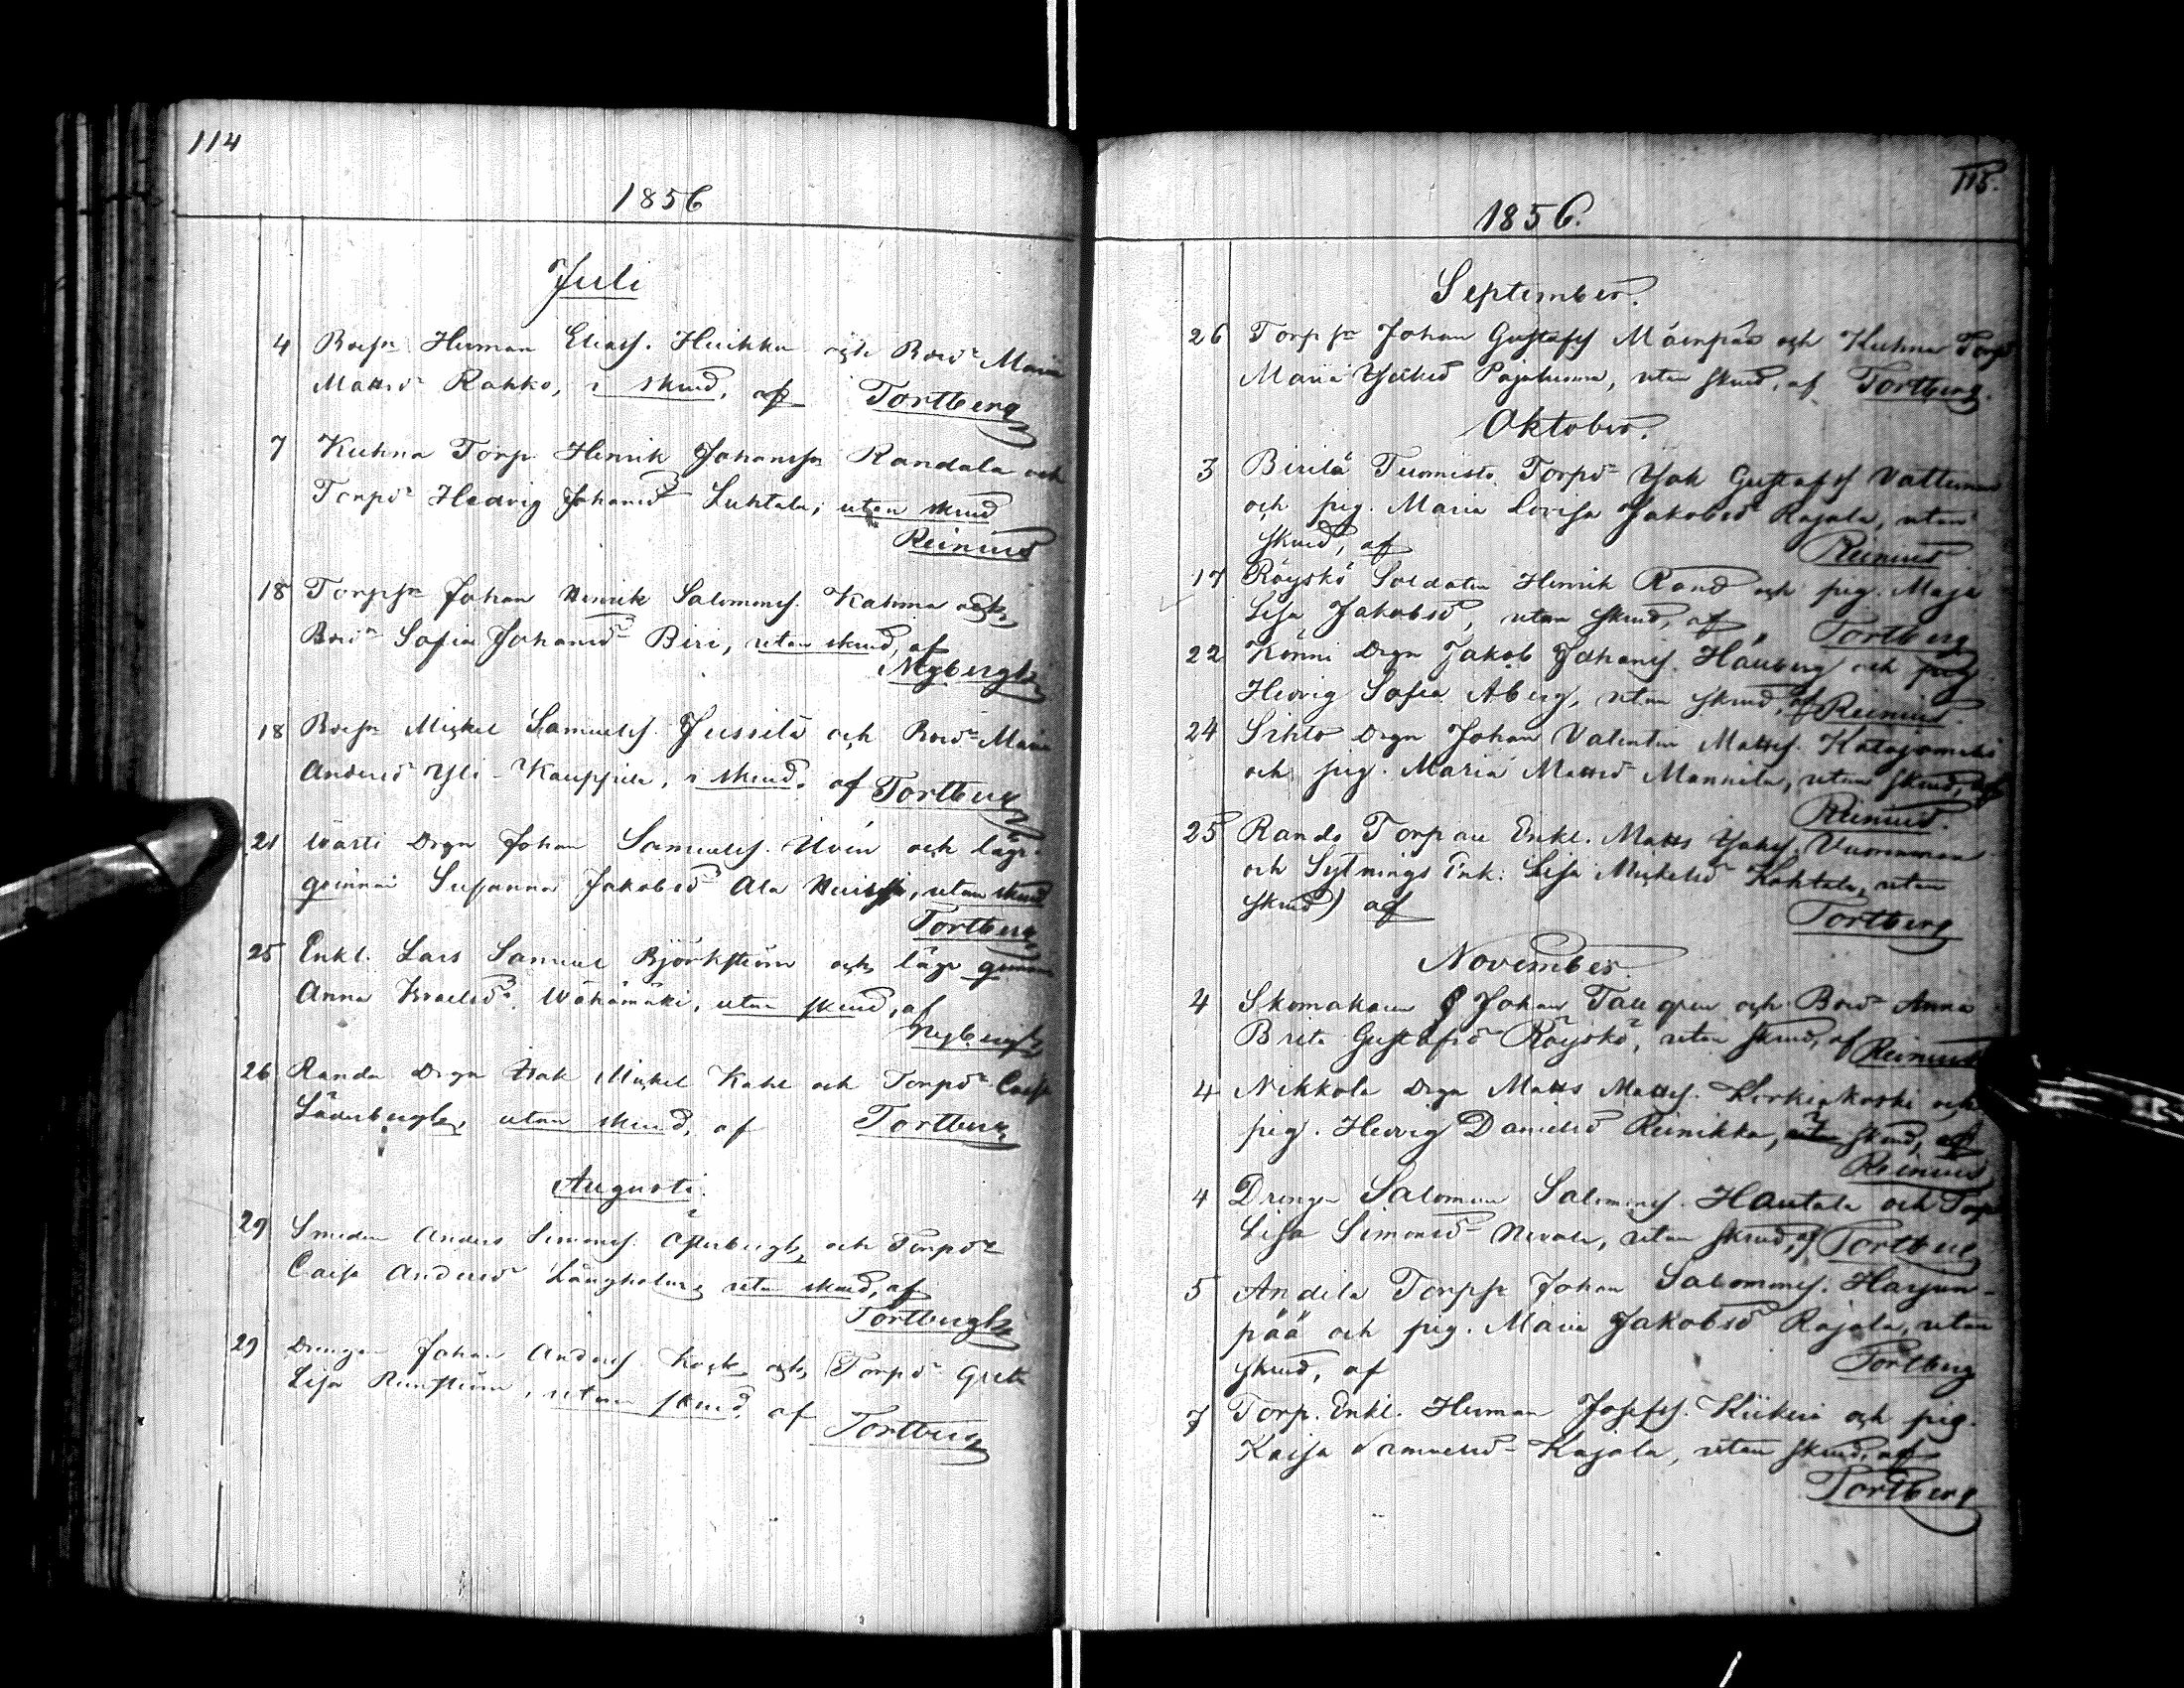 114
1856
Juli
4 Bdesn Herman Eliass. Heikku och Bdrdr Maria
Mattsdr Rahko, i skrud, af Tortberg
7 Kuhna Torp. Henrik Johansson Randala och
Torpdr Hedvig Johansdr Luhtala, utan skrud
Reinius
18 Torpsn Johan Henrik Salomons. Kahma och
Bdr Sofia Johansdr Biri, utan skrud, af
Nybergh
18 Bdesn Mickel Samuels. Jussila och Bdr Maria
Andersdr Yli-Kauppila, i skrud. af Tortberg
21 Wärti Drgn Johan Samuels. och lägr.
qvinnan Susanna Jakobsdr Ala , utan skrud
Tortberg
25 Enkl. Lars Samuel Björkström och lägr. qvinnan
Anna Israelsdr Wähämäki, utan skrud, af
Nybergh
26 Randa Drgn Isak Mickel Kahl och Torpdr Caisa
Söderbergh, utan skrud, af Tortberg
Augusti.
29 Smeden Anders Simons. Österbergh och Torpdr
Caisa Andersdr Långholm, utan skrud, af
Tortbergh
29 Drengen Johan Anders. Koski och Torpdr Greta
Lisa Renström, utan skrud, af Tortberg
115.
1856.
September.
26 Torpsn Johan Gustafss Mäenpää och Kuhna Torpd
Maria Isaksd , utan skrud, af Tortberg.
Oktober.
3 Birilä Tuomisto Torpdr Isak Gustafss
och pig. Maria Lovisa Jakobsdr Rajala, utan
skrud, af Reinius
17 Röyskö Soldaten Henrik Rand och pig. Maja
Lisa Jakobsd, utan skrud, af Tortberg
22 Könni Drgn Jakob Johans. och pig
Hedvig Sofia Åberg, utan skrud, af Reinius.
24 Sihto Drgn Johan Valentin Matts. Katajamäki
och pig. Maria Mattsdr Mannila, utan skrud, af
Reinius.
25 Rando Torpare Enkl. Matts Isaks. Vuorenmaa
och Sytnings Enk: Lisa Mickelsdr Kohtala, utan
skrud) af Tortberg
November.
4 Skomakaren Johan Tallgren och Bdr Anna
Brita Gustafsdr Röyskö, utan skrud, af Reinius
4 Nikkola Drgn Matts Matts. Korkiakoski och
pig. Hedvig Danielsd Reinikka, utan skrud, af
Reinius
4 Drengen Salomon Salomons. Hautala och Torpd
Lisa Simonsdr Nevala, utan skrud, af Tortberg
5 Andila Torpsn Johan Salomons. Harjun-
pää och pig. Maria Jakobsd Rajala, utan
skrud, af Tortberg
7 Torp. Enkl. Herman Josefss. Kiikeri och pig.
Kaisa Samuelsd- Kajala, utan skrud, af
Tortberg